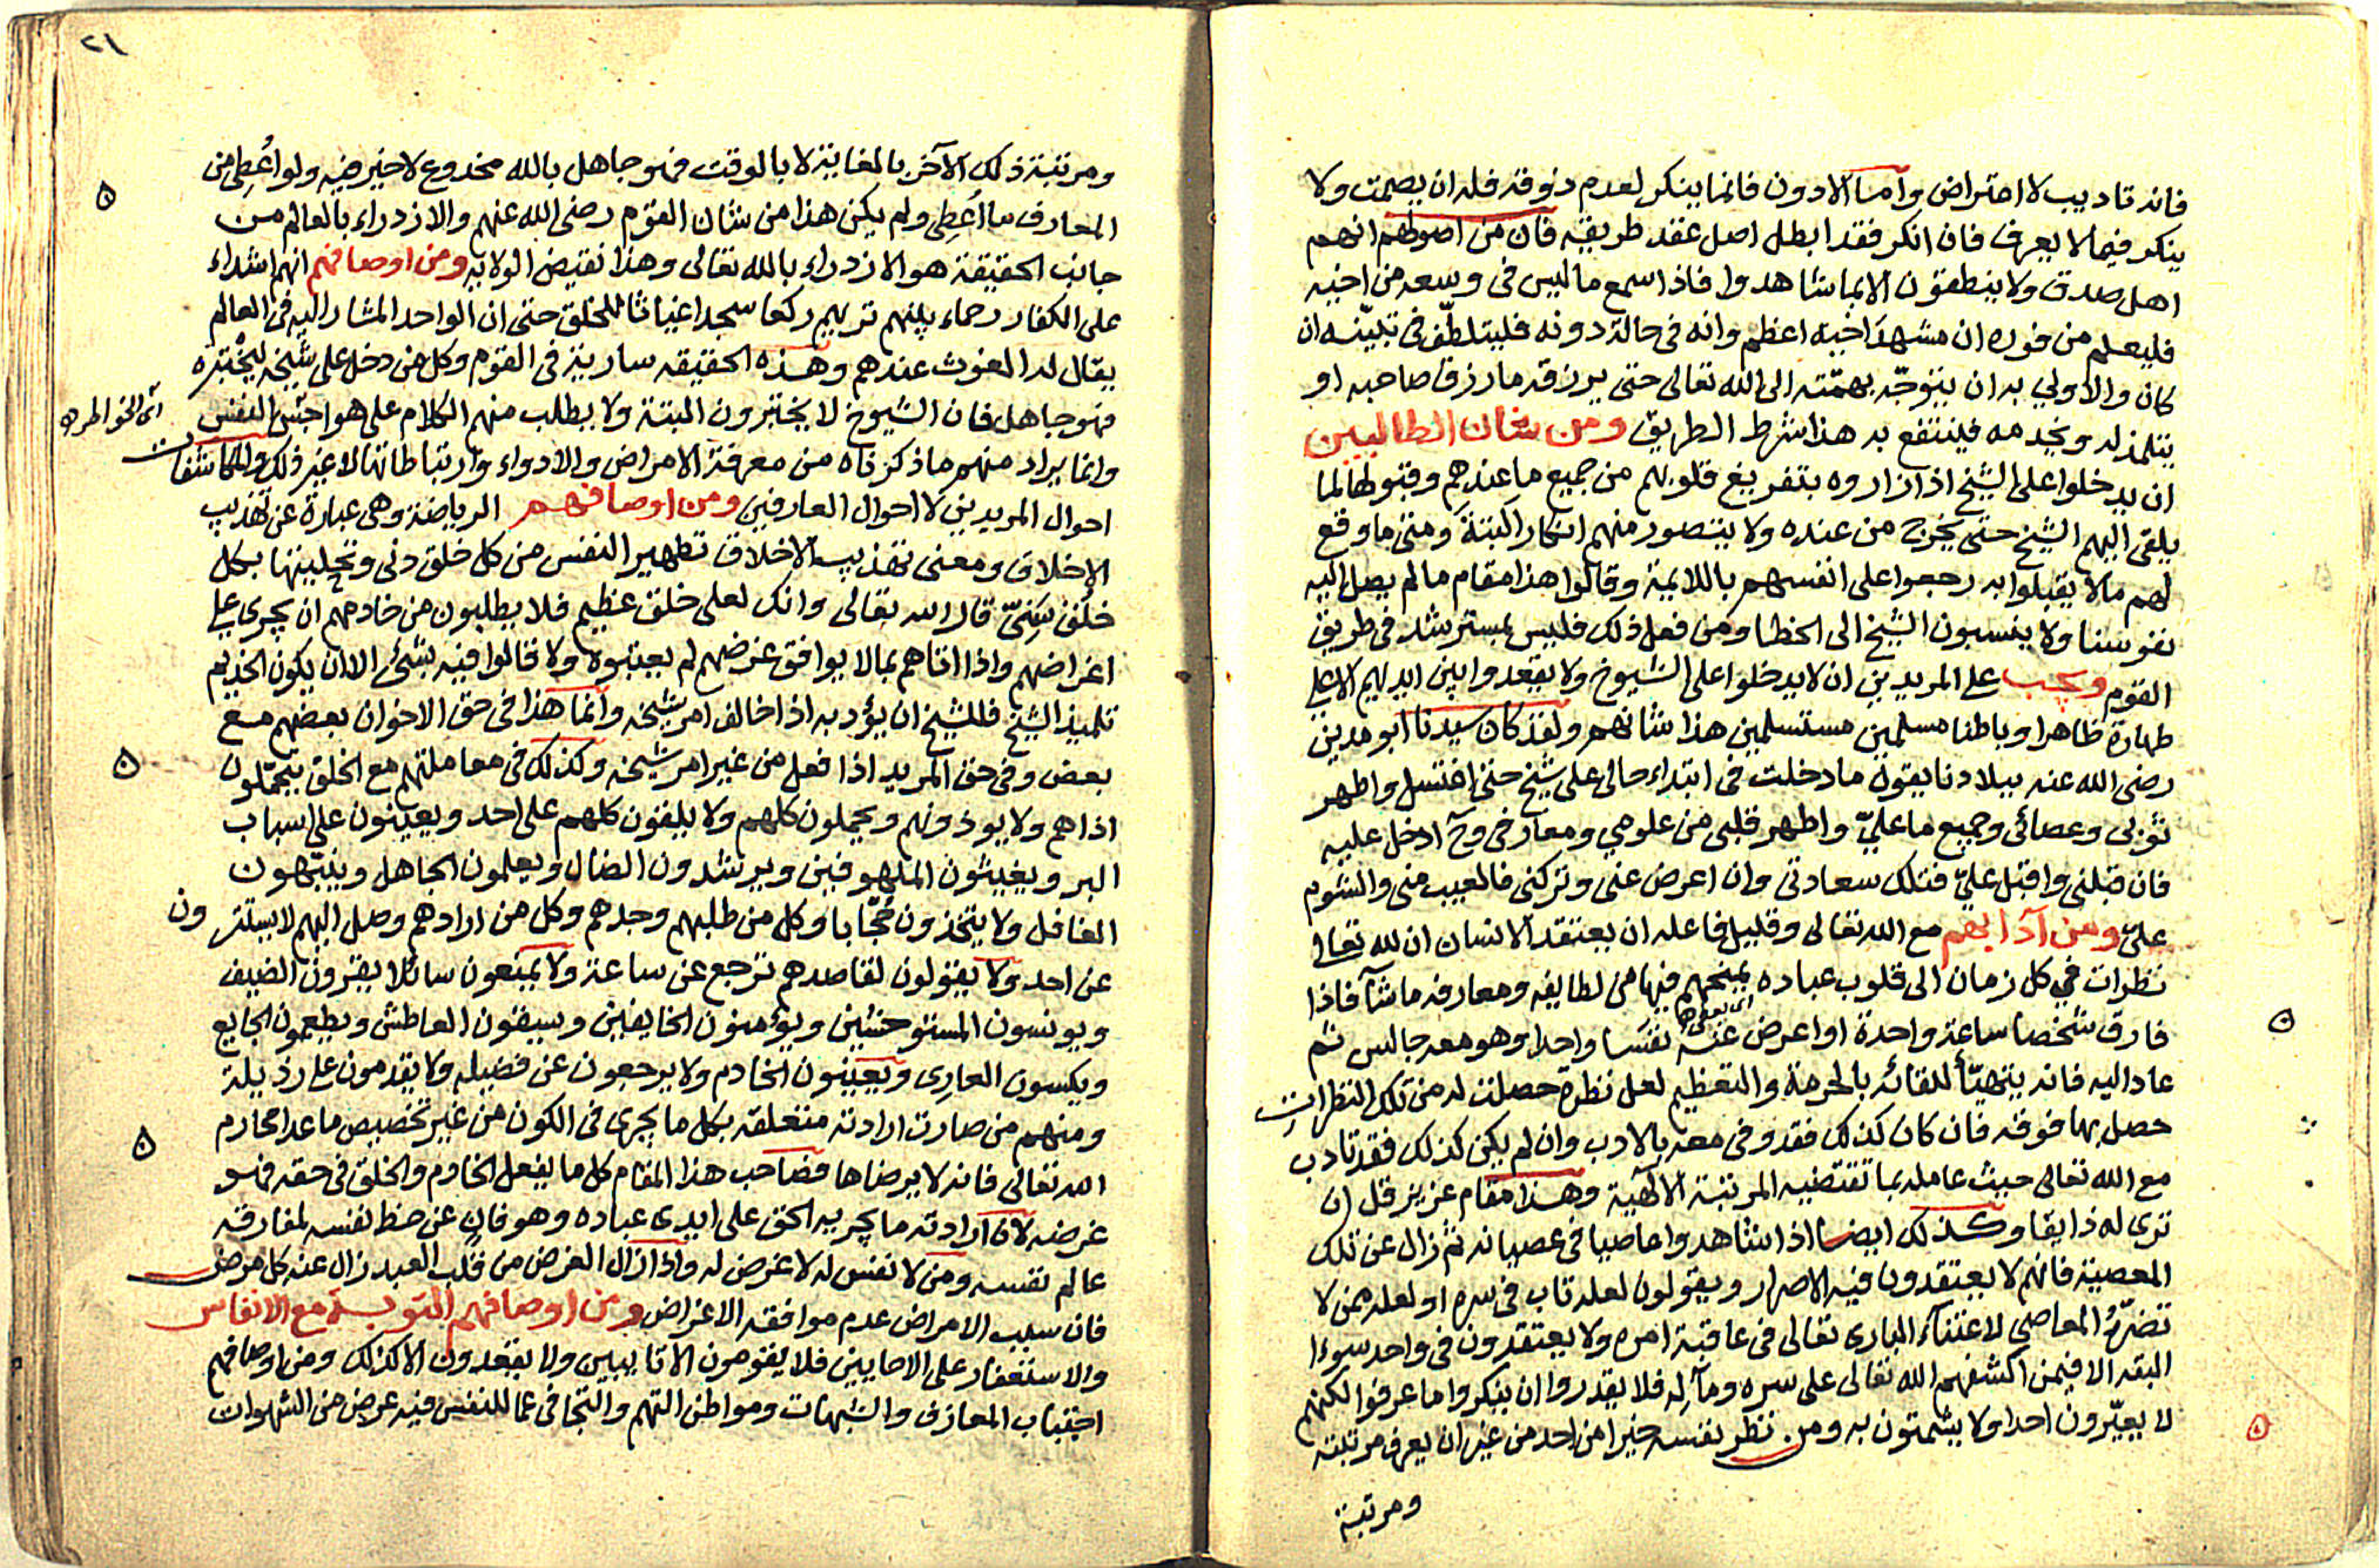 فانه تاديب لا اعتراض واما الادون فانما ينكر لعدم ذوقه فله ان يصمت ولا
ينكر فيما لا يعرف فان انكر فقد ابطل اصل عقد طريقه فان من اصولهم انهم
اهل صدق ولا ينطقون الا بما شاهدوا فاذا سمع ما ليس في وسعه من اخيه
فليعلم من فوره ان مشهد اخيه اعظم وانه في حالة دونه فليتلطف في تبيينه ان
كان والاولي به ان يتوجه بهمته الى الله تعالى حتى يرزقه ما رزق صاحبه او
يتلمذ له ويخدمه فينتفع به هذا شرط الطريق ومن شان الطالبين
ان يدخلوا على الشيخ اذا زاروه بتفريغ قلوبهم من جميع ما عندهم وقبولها لما
يلقى اليهم الشيخ حتى يخرج من عنده ولا يتصور منهم انكار البتة ومتى ما وقع
لهم ما لا يقبلوا به رجعوا على انفسهم باللايمة وقالوا هذا مقام ما لم يصل اليه
نفوسنا ولا ينسبون الشيخ الى الخطا ومن فعل ذلك فليس بمسترشد في طريق
القوم ويجب على المريدين ان لا يدخلوا على الشيوخ ولا يقعدوا بين ايديهم الا على
طهارة ظاهرا وباطنا مسلمين مستسلمين هذا شانهم ولقد كان سيدنا ابو مدين
رضى الله عنه ببلادنا يقول ما دخلت في ابتداء حالى على شيخ حتى اغتسل واطهر
ثوبى وعصائى وجميع ما علىّ واطهر قلبى من علومي ومعارفي وح ادخل عليه
فان قبلنى واقبل علىّ فتلك سعادتى وان اعرض عنى وتركنى فالعيب منى والشوم
علىّ ومن آدابهم مع الله تعالى وقليل فاعله ان يعتقد الانسان ان لله تعالى
نظرات في كل زمان الى قلوب عباده يمنحهم فيها من لطايفه ومعارفه ما شآ فاذا
فارق شخصا ساعة واحدة او اعرض عنه نفسا واحدا وهو معه جالس ثم
عاد اليه فانه يتهيأ للقائه بالحرمة والتعظيم لعل نظرة حصلت له من تلك النظرات
حصل بها فوقه فان كان كذلك فقد وفى معه بالادب وان لم يكن كذلك فقد تادب
مع الله تعالى حيث عامله بما تقتضيه المرتبة الالهية وهذا مقام عزيز قل ان
ترى له ذايقا وكذلك ايضا اذا شاهدوا عاصيا في عصيانه ثم زال عن تلك
المعصية فانهم لا يعتقدون فيه الاصرار ويقولون لعله تاب في سره او لعله ممن لا
تضرّهُ المعاصي لاعتناء البارى تعالى في عاقبة امره ولا يعتقدون في واحد سوءا
البته الا فيمن اكشفهم الله تعالى على سره ومآله فلا يقدروا ان ينكروا ما عرفوا لكنهم
لا يعيّرون احدا ولا يشمتون به ومن نظر نفسه خيرا من احد من غير ان يعرف مرتبته
ومرتبة
٢١
ومرتبة ذلك الآخر بالغاية لا بالوقت فهو جاهل بالله مخدوع لا خير فيه ولو اُعطِى من
المعارف ما اُعطِى ولم يكن هذا من شان القوم رضى الله عنهم والازدراء بالعالم من
جانب الحقيقة هو الازدراء بالله تعالى وهذا نقيض الولاية ومن اوصافهم انهم اشداء
على الكفار رحماء بينهم تريهم ركعا سجدا غياثا للخلق حتى ان الواحد المشار اليه في العالم
يقال له الغوث عندهم وهذه الحقيقه سارية في القوم وكل من دخل على شيخه ليختبره
فهو جاهل فان الشيوخ لا يختبرون البتة ولا يطلب منهم الكلام على هواجس النفس
اى الخواطر
وانما يراد منهم ما ذكرناه من معرفة الامراض والادواء وارتباطاتها لا غير ذلك والمكاشفات
احوال المريدين لا احوال العارفين ومن اوصافهم الرياضة وهى عبارة عن تهذيب
الاخلاق ومعنى تهذيب الاخلاق تطهير النفس من كل خلق دنى وتحليتها بكل
خلق سَنىّ قال الله تعالى وانك لعلى خلق عظيم فلا يطلبون من خادمهم ان يجري على
اغراضهم واذا اتاهم بما لا يوافق غرضهم لم يعتبوه ولا قالوا فيه بشئ الا ان يكون الخديم
تلميذ الشيخ فللشيخ ان يؤدبه اذا خالف امر شيخه وانما هذا في حق الاخوان بعضهم مع
بعض وفي حق المريد اذا فعل من غير امر شيخه وكذلك في معاملتهم مع الخلق يتحملون
اذاهم ولا يوذونهم ويحملون كلهم ولا يلقون كلهم على احد ويعينون على اسباب
البر ويغيثون الملهوفين ويرشدون الضال ويعلمون الجاهل وينبّهون
الغافل ولا يتخذون حُجّابا وكل من طلبهم وجدهم وكل من ارادهم وصل اليهم لا يستترون
عن احد ولا يقولون لقاصدهم ترجع عن ساعة ولا يمنعون سائلا يقرون الضيف
ويونسون المستوحشين ويؤمنون الخايفين ويسقون العاطش ويطعمون الجايع
ويكسون العارى ويعينون الخادم ولا يرجعون عن فضيله ولا يقدمون على رذيلة
ومنهم من صارت ارادته متعلقه بكل ما يجرى في الكون من غير تخصيص ما عدا محارم
الله تعالى فانه لا يرضاها فصاحب هذا المقام كل ما يفعل الخادم والخلق في حقه فهو
غرضه لان ارادته ما يجريه الحق على ايدى عباده وهو فان عن حظ نفسه لمفارقة
عالم نفسه ومن لا نفس له لا غرض له واذا زال الغرض من قلب العبد زال عنه كل مرض
فان سبب الامراض عدم موافقة الاغراض ومن اوصافهم التوبة مع الانفاس
والاستغفار على الاحايين فلا يقومون الا تايبين ولا يقعدون الا كذلك ومن اوصافهم
اجتناب المعازف والشبهات ومواطن التهم والتجافى عما للنفس فيه عرض من الشهوات